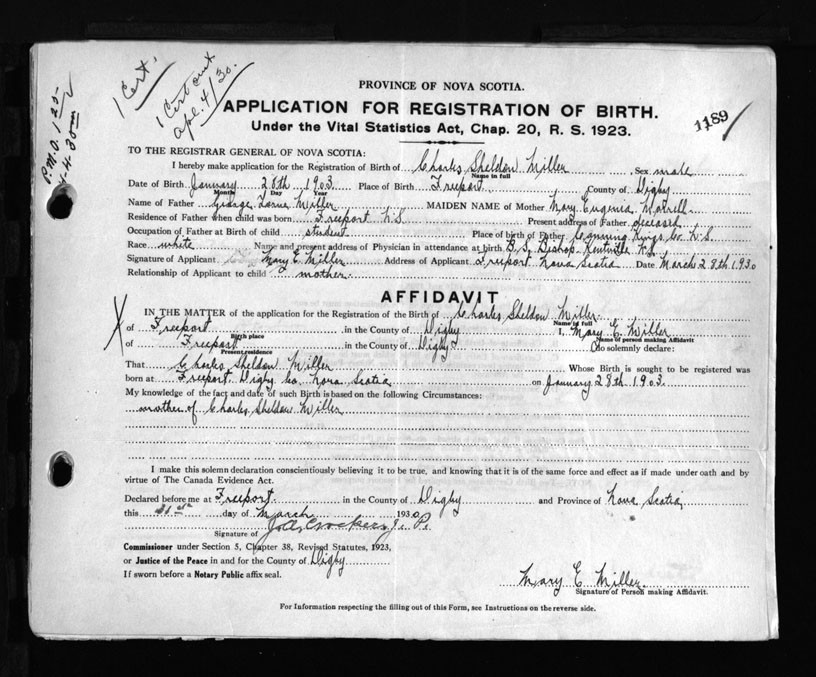 1 Cert.
1 Cert out
Apl. 4/30.
P.M.O. 1 25
4-4-30
1189
PROVINCE OF NOVA SCOTIA.
APPLICATION FOR REGISTRATION OF BIRTH.
Under the Vital Statistics Act, Chap. 20, R. S. 1923.
TO THE REGISTRAR GENERAL OF NOVA SCOTIA:
I hereby make application for the Registration of Birth of Charles Sheldon Miller Sex male
Name in full
Date of Birth January 28th 1903 Place of Birth Freeport County of Digby
Month Day Year
Name of Father George Lorne Miller MAIDEN NAME of Mother Mary Eugenia Morrell
Residence of Father when child was born Freeport N.S. Present address of Father deceased
Occupation of Father at Birth of child student Place of birth of Father Canning Kings Co. N.S.
Race white Name and present address of Physician in attendance at birth B.S. Bishop Kentville N.S.
Signature of Applicant Mary E Miller Address of Applicant Freeport Nova Scotia Date March 28th 1930
Relationship of Applicant to child mother
AFFIDAVIT
X
IN THE MATTER of the application for the Registration of the Birth of Charles Sheldon Miller
Name in full
of Freeport in the County of Digby I, Mary E Miller
Birth place Name of person making Affidavit
of Freeport in the County of Digby do solemnly declare:
Present residence
That Charles Sheldon Miller Whose Birth is sought to be registered was
born at Freeport Digby Co. Nova Scotia on January 28th 1903.
My knowledge of the fact and date of such Birth is based on the following Circumstances:
mother of Charles Sheldon Miller
I make this solemn declaration conscientiously believing it to be true, and knowing that it is of the same force and effect as if made under oath and by
virtue of The Canada Evidence Act.
Declared before me at Freeport in the County of Digby and Province of Nova Scotia
this 31st day of March 1930
Signature of Crocker J. P.
Commissioner under Section 5, Chapter 38, Revised Statutes, 1923,
or Justice of the Peace in and for the County of Digby
If sworn before a Notary Public affix seal.
Mary E Miller
Signature of Person making Affidavit.
For Information respecting the filling out of this Form, see Instructions on the reverse side.